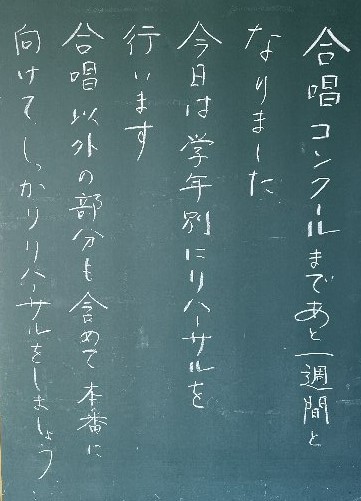 合唱コンクールまであと一週間と
なりました
今日は学年別にリハーサルを
行います
合唱以外の部分も含めて本番に
向けて、しっかりリハーサルをしましょう